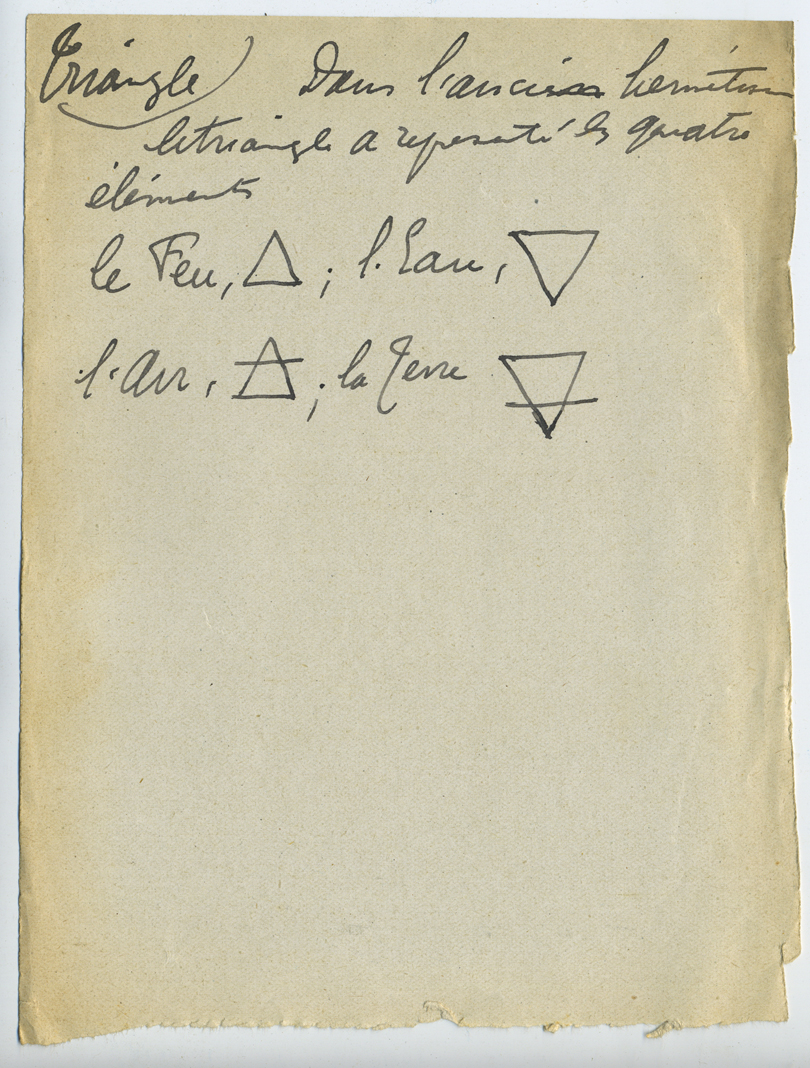 Triangle) Dans l'ancien hermétisme
le triangle a représenté les quatre
éléments
le Feu, △ ; l'Eau, ▽
l'Air, 🜁 ; la Terre 🜃